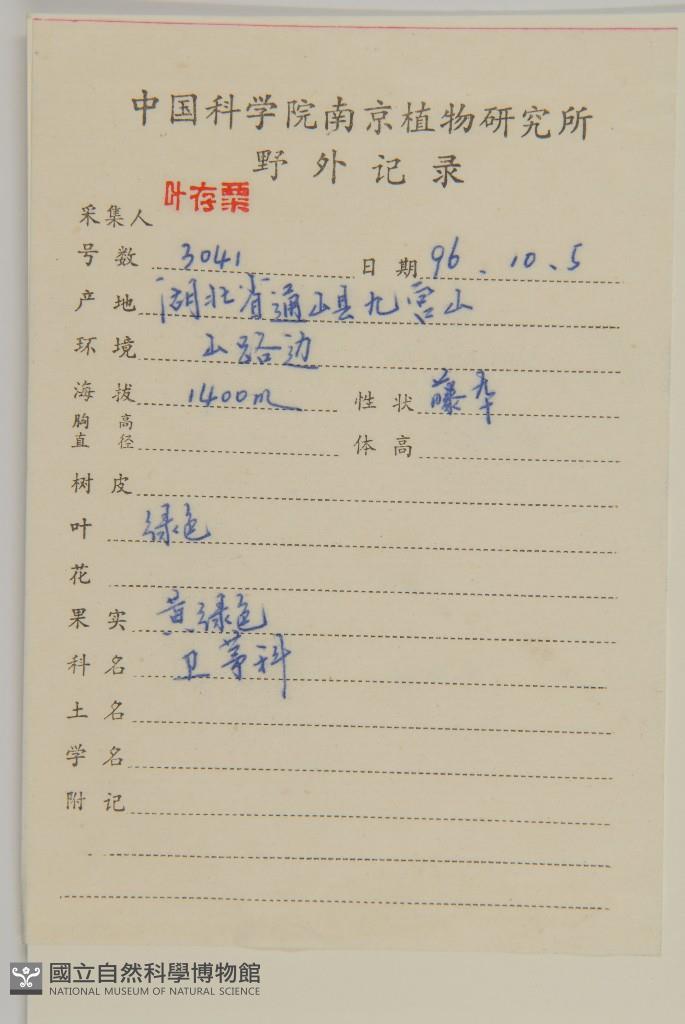 中国科学院南京植物研究所
野外记录
采集人 叶存粟
号数 3041 日期 96.10.5
产地 湖北省通山县九宫山
环境 山路边
海拔 1400m 性状 藤本
胸高直径 体高
树皮
叶 绿色
花
果实 黄绿色
科名 卫茅科
土名
学名
附记
國立自然科學博物館
NATIONAL MUSEUM OF NATURAL SCIENCE